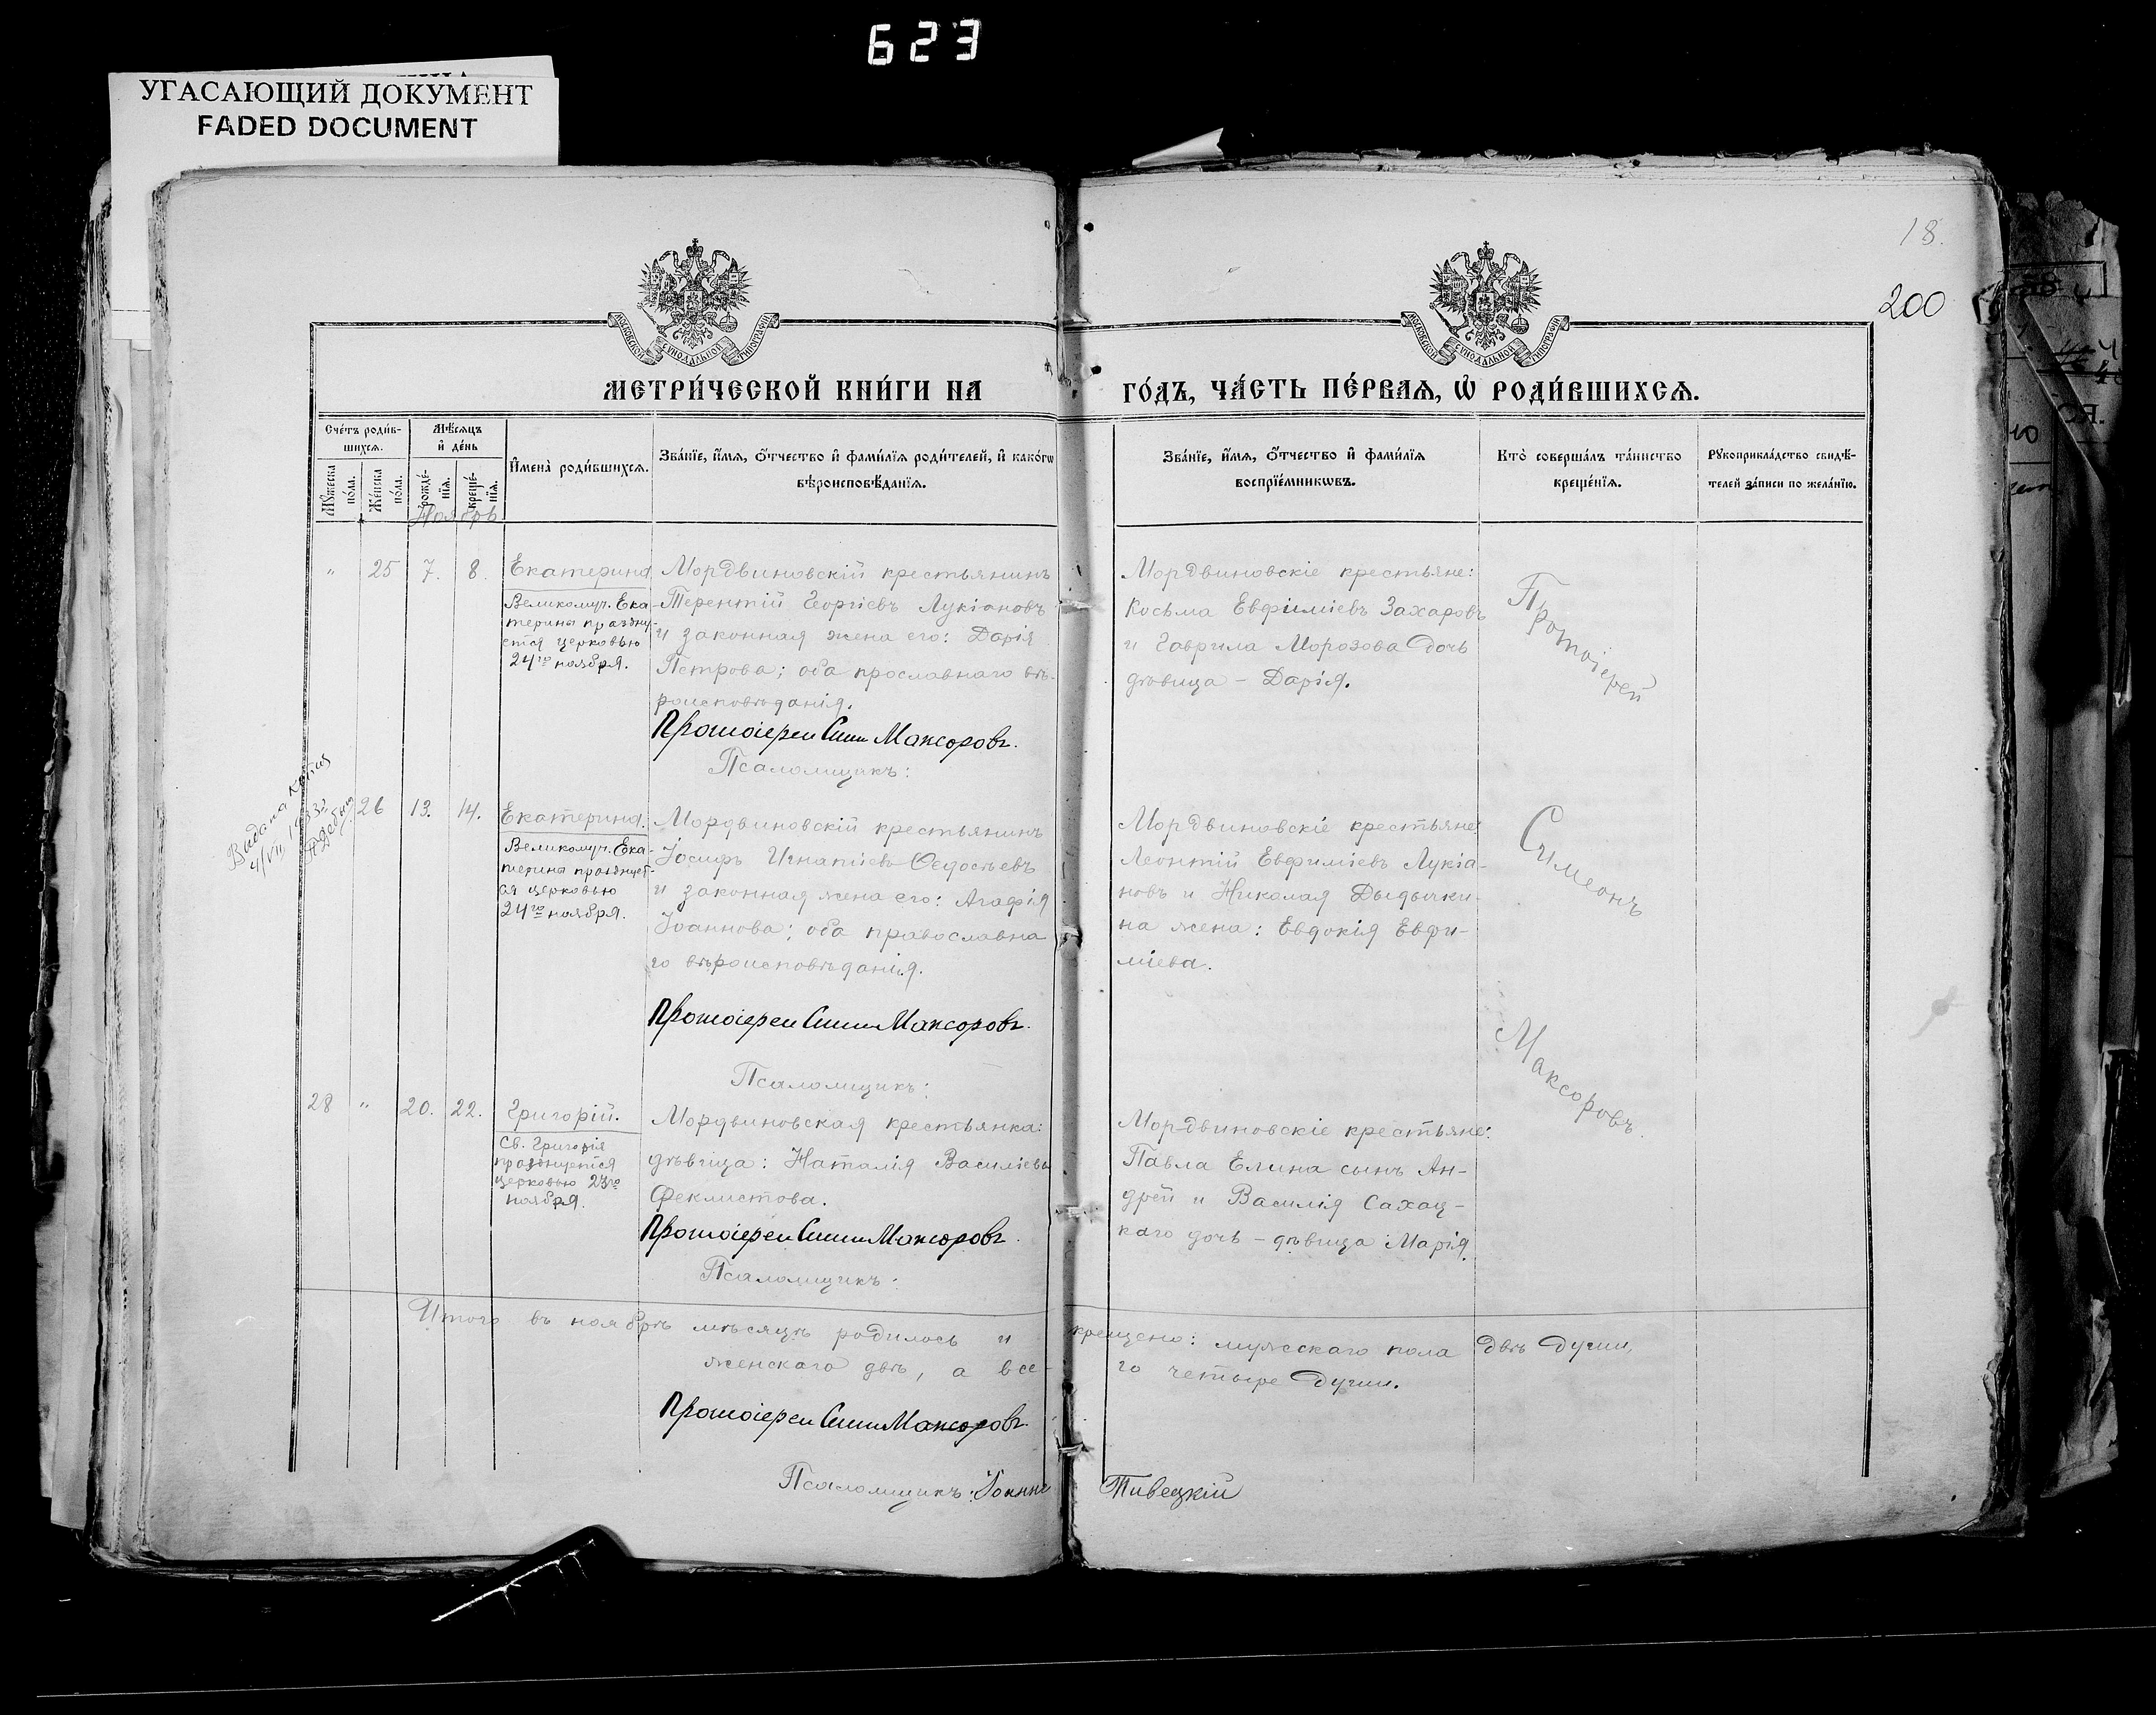 623
УГАСАЮЩИЙ ДОКУМЕНТ
FADED DOCUMENT
18.
200
МОСКОВСКОЙ СѴНОДАЛЬНОЙ ТИПОГРАФІИ
МОСКОВСКОЙ СѴНОДАЛЬНОЙ ТИПОГРАФІИ
МЕТРИ́ЧЕСКОЙ КНИ́ГИ НА ГО́ДЪ, ЧА́СТЬ ПЕ́РВАѦ, Ѡ҆ РОДИ́ВШИХСѦ.
Сче́тъ роди́в-
шихсѧ.
Мꙋ́жеска по́ла.
Же́нска по́ла.
Мѣ́сѧцъ
и҆ де́нь
рожде́-
нїѧ.
креще́-
нїѧ.
И҆мена̀ роди́вшихсѧ.
Зва́нїе, и҆́мѧ, ѻ҆́тчество и҆ фами́лїѧ роди́телей, и҆ како́гѡ
вѣроисповѣ́данїѧ.
Зва́нїе, и҆́мѧ, ѻ҆́тчество и҆ фами́лїѧ
воспрїе́мникѡвъ.
Кто̀ соверша́лъ та́инство
креще́нїѧ.
Рꙋкоприкла́дство свидѣ́-
телей за́писи по жела́нїю.
Ноябрь
" 25 7. 8. Екатерина
Великомуч. Ека-
терины праздну-
ется церковью
24го ноября.
Мордвиновскій крестьянинъ
Терентій Георгіевъ Лукіановъ
и законная жена его: Дарія
Петрова; оба прославнаго вѣ-
роисповѣданія.
Протоіерей Сим Максоровъ.
Псаломщикъ:
Мордвиновскіе крестьяне:
Косьма Евфиміевъ Захаровъ
и Гаврила Морозова дочь
дѣвица – Дарія.
Протоіерей
Выдана копія
4/VII 1933
26 13. 14. Екатерина.
Великомуч. Ека-
терины празднует-
ся церковью
24го ноября.
Мордвиновскій крестьянинъ
Іосифъ Игнатіевъ Ѳедосѣевъ
и законная жена его: Агафія
Іоаннова; оба православна
го вѣроисповѣданія.
Протоіерей Сим Максоровъ.
Псаломщикъ:
Мордвиновскіе крестьяне:
Леонтій Евфиміевъ Лукіа-
новъ и Николая Дыдычки-
на жена: Евдокія Евфи-
міева.
Симеонъ
Максоровъ.
28 " 20. 22. Григорій.
Св. Григорія
празднуется
церковью 23го
ноября.
Мордвиновская крестьянка:
дѣвица: Наталія Василіева
Феклистова.
Протоіерей Сим Максоровъ.
Псаломщикъ:
Мордвиновскіе крестьяне:
Павла Елина сынъ Ан-
дрей и Василія Сахац-
каго дочь – дѣвица Марія.
Итого въ ноябрѣ мѣсяцѣ родилось и крещено: мужескаго пола двѣ души,
женскаго двѣ, а все- го четыре души.
Протоіерей Сим Максоровъ.
Псаломщикъ: Іоаннъ Тивецкій